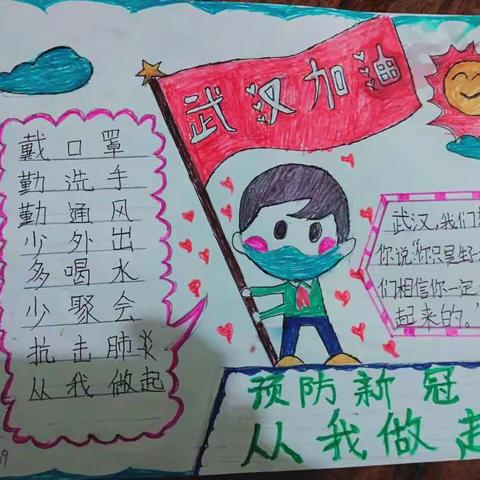 武汉加油
戴口罩
勤洗手
勤通风
少外出
多喝水
少聚会
抗击肺炎
从我做起
武汉,我们想
你说“你只是生
们相信你一定
起来的。”
预防新冠
从我做起